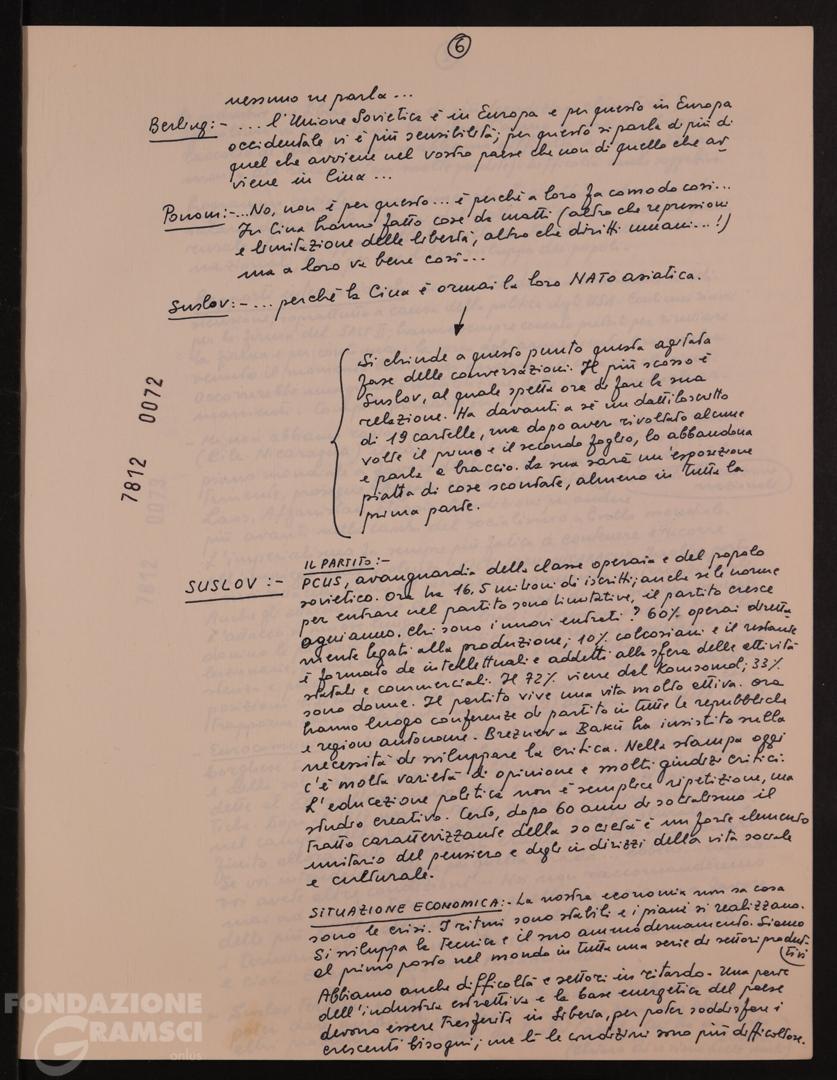 6
nessuno ne parla...
Berling:- ... l'Unione Sovietica è in Europa e per questo in Europa
occidentale vi è più sensibilità; per questo si parla di più di
quel che avviene nel vostro paese che non di quello che av-
viene in Cina...
Ponom:- ... No, non è per questo... è perché a loro fa comodo così...
In Cina hanno fatto cose da matti (altro che repressioni
e limitazione delle libertà, altro che diritti umani...!)
ma a loro va bene così...
Suslov:- ... perché la Cina è ormai la loro NATO asiatica.
Si chiude a questo punto questa agitata
fase delle conversazioni. Il più scosso è
Suslov, al quale spetta ora di fare la sua
relazione. Ha davanti a sé un dattiloscritto
di 19 cartelle, ma dopo aver rivoltato alcune
volte il primo e il secondo foglio, lo abbandona
e parla a braccio. La sua sarà un'esposizione
piatta di cose scontate, almeno in tutta la
prima parte.
7812 0072
IL PARTITO:-
SUSLOV:- PCUS, avanguardia della classe operaia e del popolo
sovietico. Ora ha 16,5 milioni di iscritti; anche se le norme
per entrare nel partito sono limitative, il partito cresce
ogni anno. Chi sono i nuovi entrati? 60% operai diretta-
mente legati alla produzione; 10% colcosiani e il restante
è formato da intellettuali e addetti alla sfera delle attività
statali e commerciali. Il 72% viene dal Komsomol; 33%
sono donne. Il partito vive una vita molto attiva. Ora
hanno luogo conferenze di partito in tutte le repubbliche
e regioni autonome. Breznev a Bakù ha insistito sulla
necessità di sviluppare la critica. Nella stampa oggi
c'è molta varietà di opinione e molti giudizi critici.
L'educazione politica non è semplice ripetizione, ma
studio creativo. Certo, dopo 60 anni di socialismo il
tratto caratterizzante della società è un forte elemento
unitario del pensiero e degli indirizzi della vita sociale
e culturale.
SITUAZIONE ECONOMICA:- La nostra economia non sa cosa
sono le crisi. I ritmi sono stabili e i piani si realizzano.
Si sviluppa la tecnica e il suo ammodernamento. Siamo
al primo posto nel mondo in tutta una serie di settori produt-
tivi
Abbiamo anche difficoltà e settori in ritardo. Una parte
dell'industria estrattiva e la base energetica del paese
devono essere trasferite in Siberia, per poter soddisfare i
crescenti bisogni; ma lì le condizioni sono più difficoltose.
FONDAZIONE
GRAMSCI
onlus